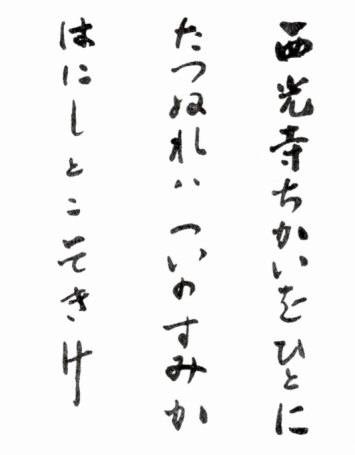 西光寺ちかいをひとに
たつぬれハついのすみか
はにしとこそきけ